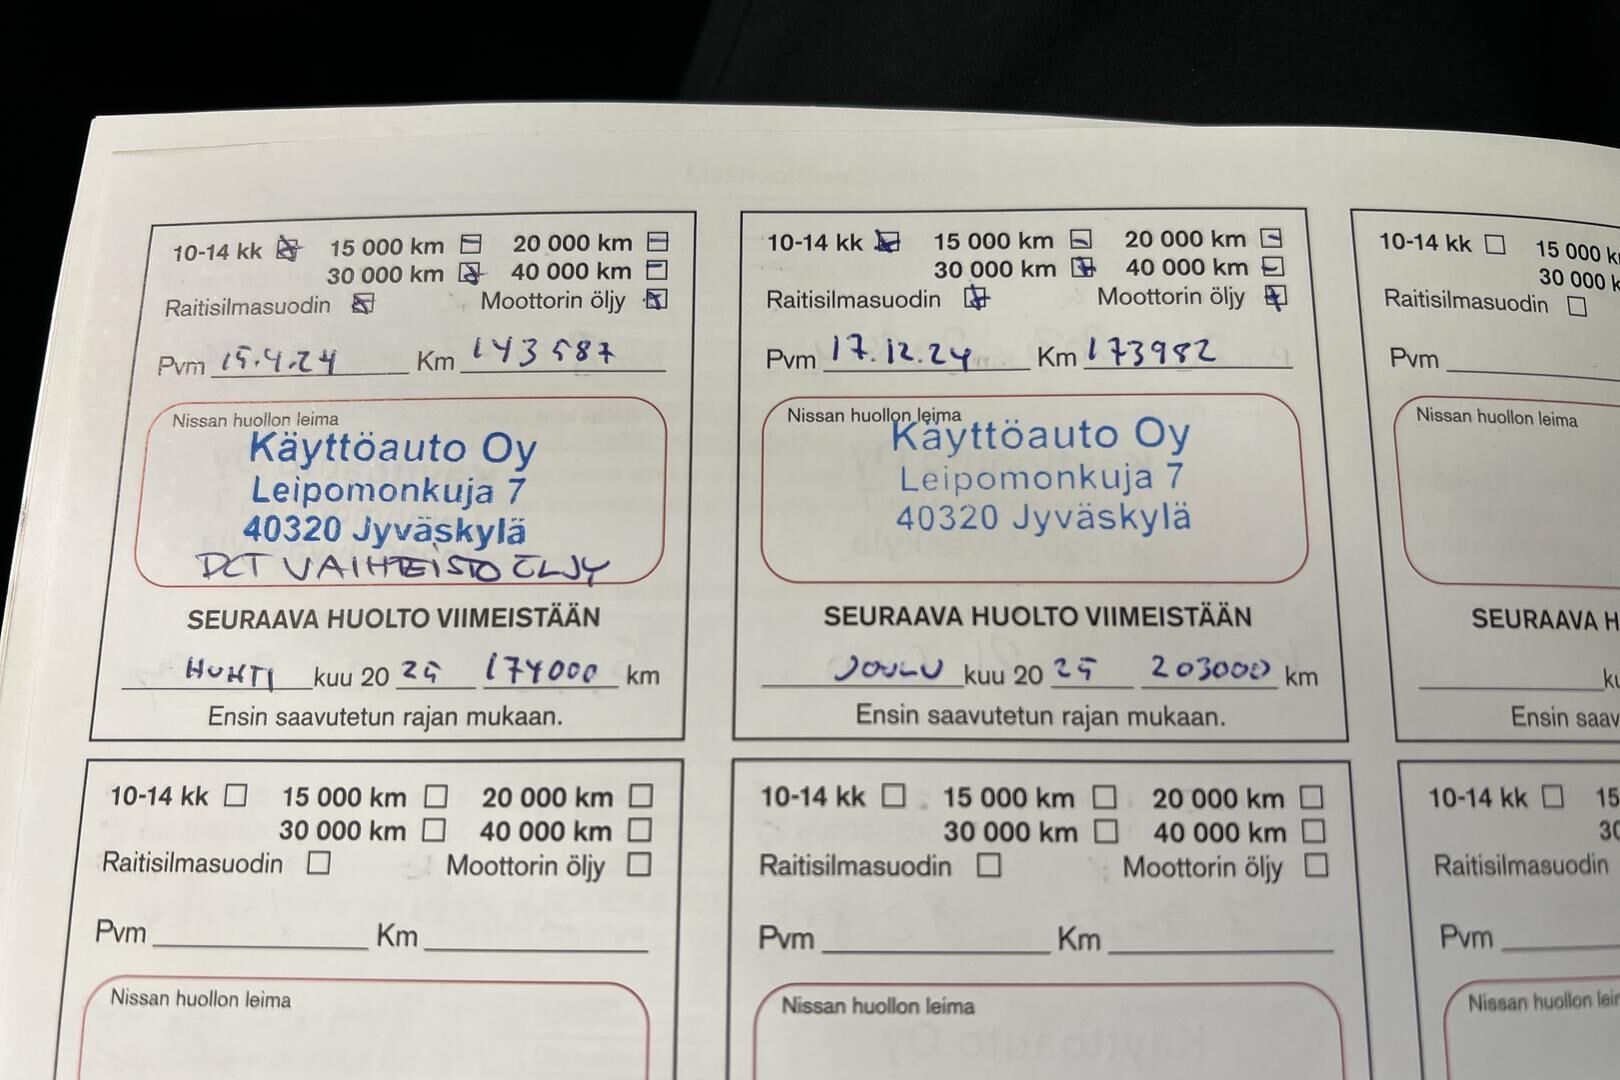 10-14 kk 15 000 km 20 000 km
30 000 km 40 000 km
Raitisilmasuodin Moottorin öljy
Pvm 15.4.24 Km 143587
Nissan huollon leima
Käyttöauto Oy
Leipomonkuja 7
40320 Jyväskylä
DCT VAIHTEISTO ÖLJY
SEURAAVA HUOLTO VIIMEISTÄÄN
HUHTI kuu 20 25 174000 km
Ensin saavutetun rajan mukaan.
10-14 kk 15 000 km 20 000 km
30 000 km 40 000 km
Raitisilmasuodin Moottorin öljy
Pvm 17.12.24 Km 173982
Nissan huollon leima
Käyttöauto Oy
Leipomonkuja 7
40320 Jyväskylä
SEURAAVA HUOLTO VIIMEISTÄÄN
JOULU kuu 20 25 203000 km
Ensin saavutetun rajan mukaan.
10-14 kk 15 000
30 000
Raitisilmasuodin
Pvm
Nissan huollon leima
SEURAAVA
Ensin
10-14 kk 15 000 km 20 000 km
30 000 km 40 000 km
Raitisilmasuodin Moottorin öljy
Pvm Km
Nissan huollon leima
10-14 kk 15 000 km 20 000 km
30 000 km 40 000 km
Raitisilmasuodin Moottorin öljy
Pvm Km
Nissan huollon leima
10-14 kk 15
Raitisilmasuodin
Pvm
Nissan huollon